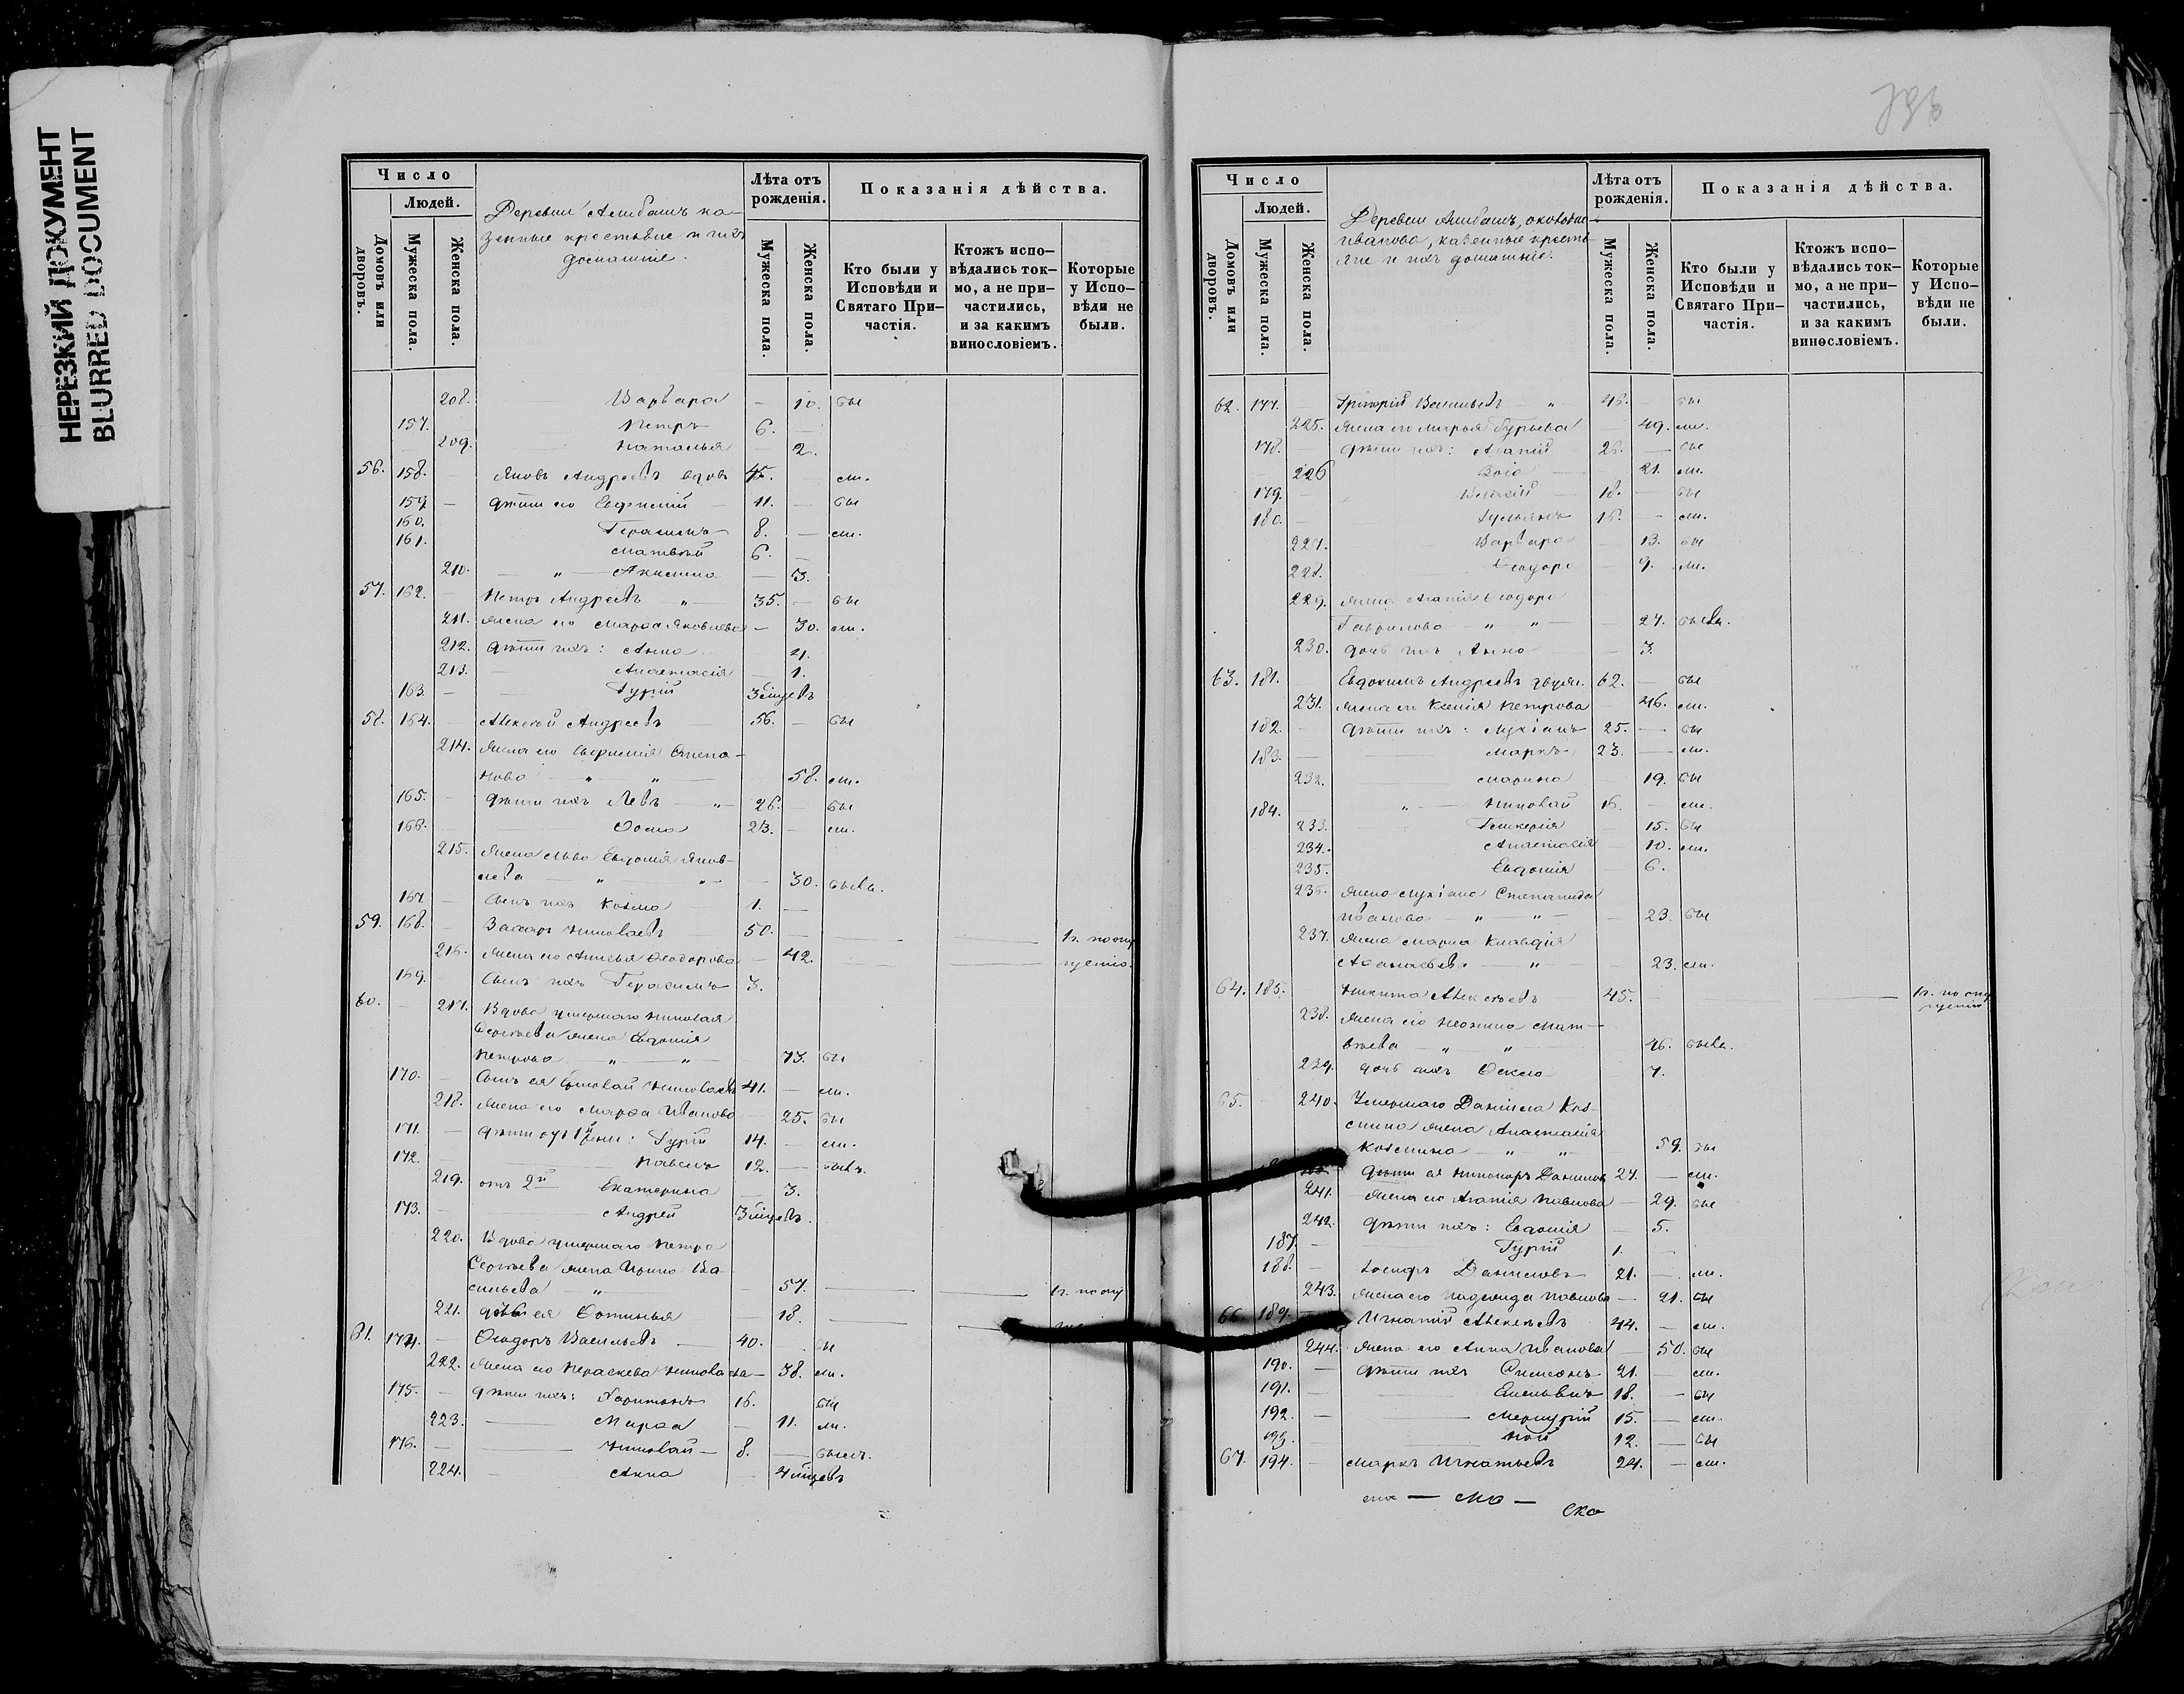 НЕРЕЗКИЙ ДОКУМЕНТ
BLURRED DOCUMENT
Число
Людей.
Домовъ или дворовъ.
Мужеска пола.
Женска пола.
Деревни Ашбашъ ка-
зенные крестьяне и ихъ
домашніе.
Лѣта отъ рожденія.
Мужеска пола.
Женска пола.
Показанія дѣйства.
Кто были у Исповѣди и Святаго При–частія.
Ктожъ испо–вѣдались ток–мо, а не при–частились, и за какимъ винословіемъ.
Которые у Испо–вѣди не были.
208. Варвара — 10. бы
157. Петръ 6. —
209. Наталья — 2.
56. 158. — Яковъ Андреевъ вдовъ 45. — ли.
159. — дѣти его Евфимій — 11. — бы
160. Герасимъ 8. — ли.
161. Матвѣй 6. —
210. — " — Акилина — 3.
57. 162. — Петръ Андреевъ " — 35. — бы
211. жена его Марѳа Яковлева — 30. ли.
212. дѣти ихъ: Анна — 4.
213. — Анастасія — 1.
163. — — Гурій 3 мѣсцевъ
58. 164. — Алексѣй Андреевъ — 56. — бы
214. Жена его Евфимія Степа-
нова — " — " — 58. ли.
165. — дѣти ихъ Левъ — " — 26. — бы
166. — Ѳома 23. — ли.
215. Жена Льва Евдокія Яков-
лева — " — " — 30. была.
167. — Сынъ ихъ Козма — 1. —
59. 168. — Захаръ Николаевъ — 50. — — — 1г. по опу
216. Жена его Ѳеодорова — 42. — — щенію.
169. — Сынъ ихъ Герасимъ 3.
60. — 217. Вдова умершаго Николая
Сергѣева жена Евдокія
Петрова " — " — 73. бы
170. — Сынъ ея Николаевъ 41. — ли.
218. Жена его Марѳа Иванова — 25. бы
171. — дѣти отъ 1й жены: Гурій 14. — ли.
172. — Павелъ 12. — былъ.
219. отъ 2й Екатерина — 3.
173. — — Андрей 3 мѣсцевъ.
220. Вдова умершаго Петра
Сергѣева жена Ирина Ва-
сильева — " — 57. — — 1г. по опу
221. дочь ея Ѳотинья — 18. —
61. 174. — Ѳеодоръ Васильевъ — 40. бы
222. Жена его Параскева Николаева — 38. ли.
175. — дѣти ихъ: Харитонъ 16. бы
223. — Марѳа — 11. ли.
176. — — Николай — 8. — былъ.
224. — Анна — 4 мѣсцевъ
Число
Людей.
Домовъ или дворовъ.
Мужеска пола.
Женска пола.
Деревни Ашбашъ,
Иванова, казенные кресть-
яне и ихъ домашніе.
Лѣта отъ рожденія.
Мужеска пола.
Женска пола.
Показанія дѣйства.
Кто были у Исповѣди и Святаго При–частія.
Ктожъ испо–вѣдались ток–мо, а не при–частились, и за какимъ винословіемъ.
Которые у Испо–вѣди не были.
62. 177. — Григорій Васильевъ — " 48. — бы
225. Жена его Марья Гурьева — 49. ли.
178. — дѣти ихъ: Агапій — 26. — бы
226 Зоіа — 21. ли.
179. 18. — бы
180. — 16. — ли.
227. Варвара — 13. бы
228. Ѳеодора — 9. ли.
229. жена Агапія Ѳеодора
Гаврилова — " " — 27. была.
230. дочь ихъ Анна — 3.
63. 181. Евдокимъ Андреевъ 62. — бы
231. жена его Ксенія Петрова — 46. ли.
182. — дѣти ихъ: Лукіанъ 25. — бы
183. — Маркъ 23. — ли.
232. Марина — 19. бы
184. — " — Николай 16. — ли.
233. Гликерія — 15. бы
234. Анастасія — 10. ли.
235. Евдокія — 6.
236. Жена Лукіана Степанида
Иванова — " — " — 23. бы
237. Жена Марка Клавдія
Аѳанасьева — " — 23. ли.
64. 185. — Никита Алексѣевъ 45. — — 1г. по опу
щенію
238. Жена его Неонила Мат-
вѣева — " — " — 46. была.
239. дочь ихъ Ѳекла — 7.
65. — 240. Умершаго Даніила Коз-
мина жена Анастасія
Козмина — " " — 59. бы
дѣти ея Никаноръ Даниловъ 27. — ли.
241. Жена его Агапія Павлова — 29. бы
242. дѣти ихъ: Евдокія — 5.
187. — Гурій 1. —
188. — Іосифъ Даниловъ 21. — ли.
243. Жена его Надежда Павлова — 21. бы
66. 189. Игнатій Алексѣевъ 44. — ли.
244. Жена его Анна Иванова — 50. бы
190. — дѣти ихъ Симеонъ 21. — ли.
191. — Емельянъ 18. — бы
192. — — Меркурій 15. — ли.
193. — Ной 12. — бы
67. 194. — Маркъ Игнатьевъ 24. — ли.